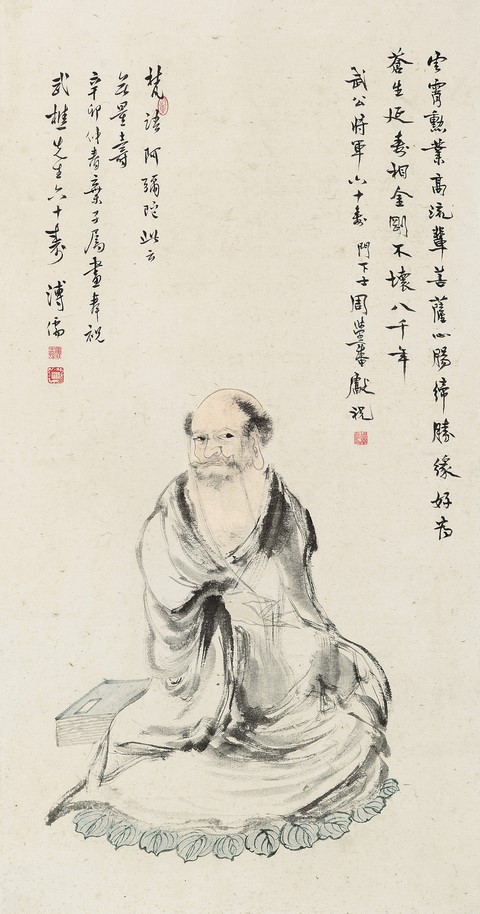 雲霄勳業高流輩菩薩心腸締勝緣好為
蒼生延壽相金剛不壞八千年
武公將軍六十壽 門下士周學藩獻祝
梵語阿彌陀此云
無量壽
辛卯仲春棄子屬畫奉祝
武樵先生六十壽 溥儒